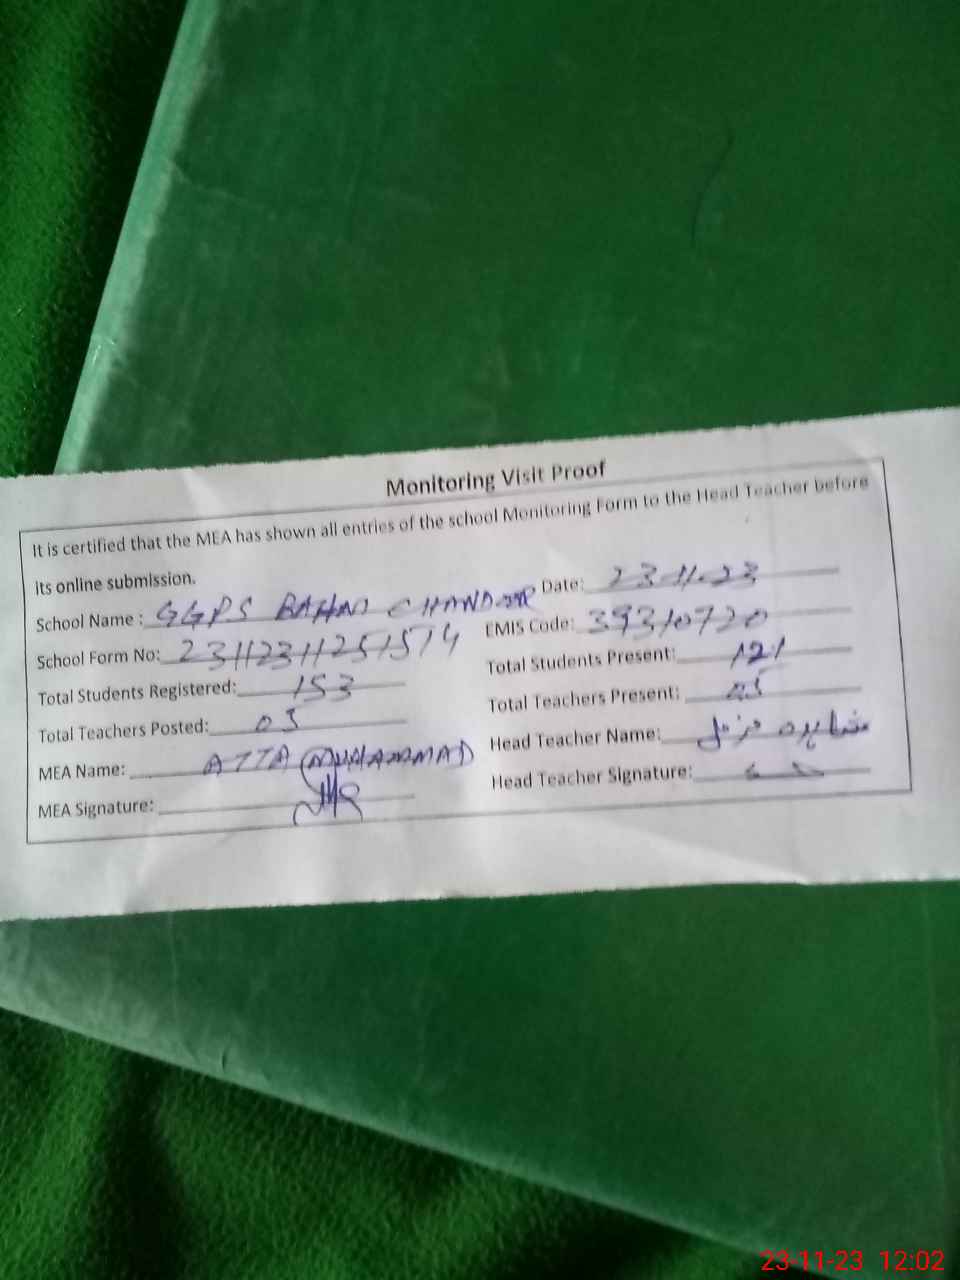 Monitoring Visit Proof
It is certified that the MEA has shown all entries of the school Monitoring Form to the Head Teacher before
its online submission.
School Name : GGPS Date: 23-11-23
School Form No: 23112311251514 EMIS Code: 39310720
Total Students Registered: 153 Total Students Present: 121
Total Teachers Posted: 05 Total Teachers Present: 05
MEA Name: ATTA MUHAMMAD Head Teacher Name:
MEA Signature: Head Teacher Signature:
23-11-23 12:02